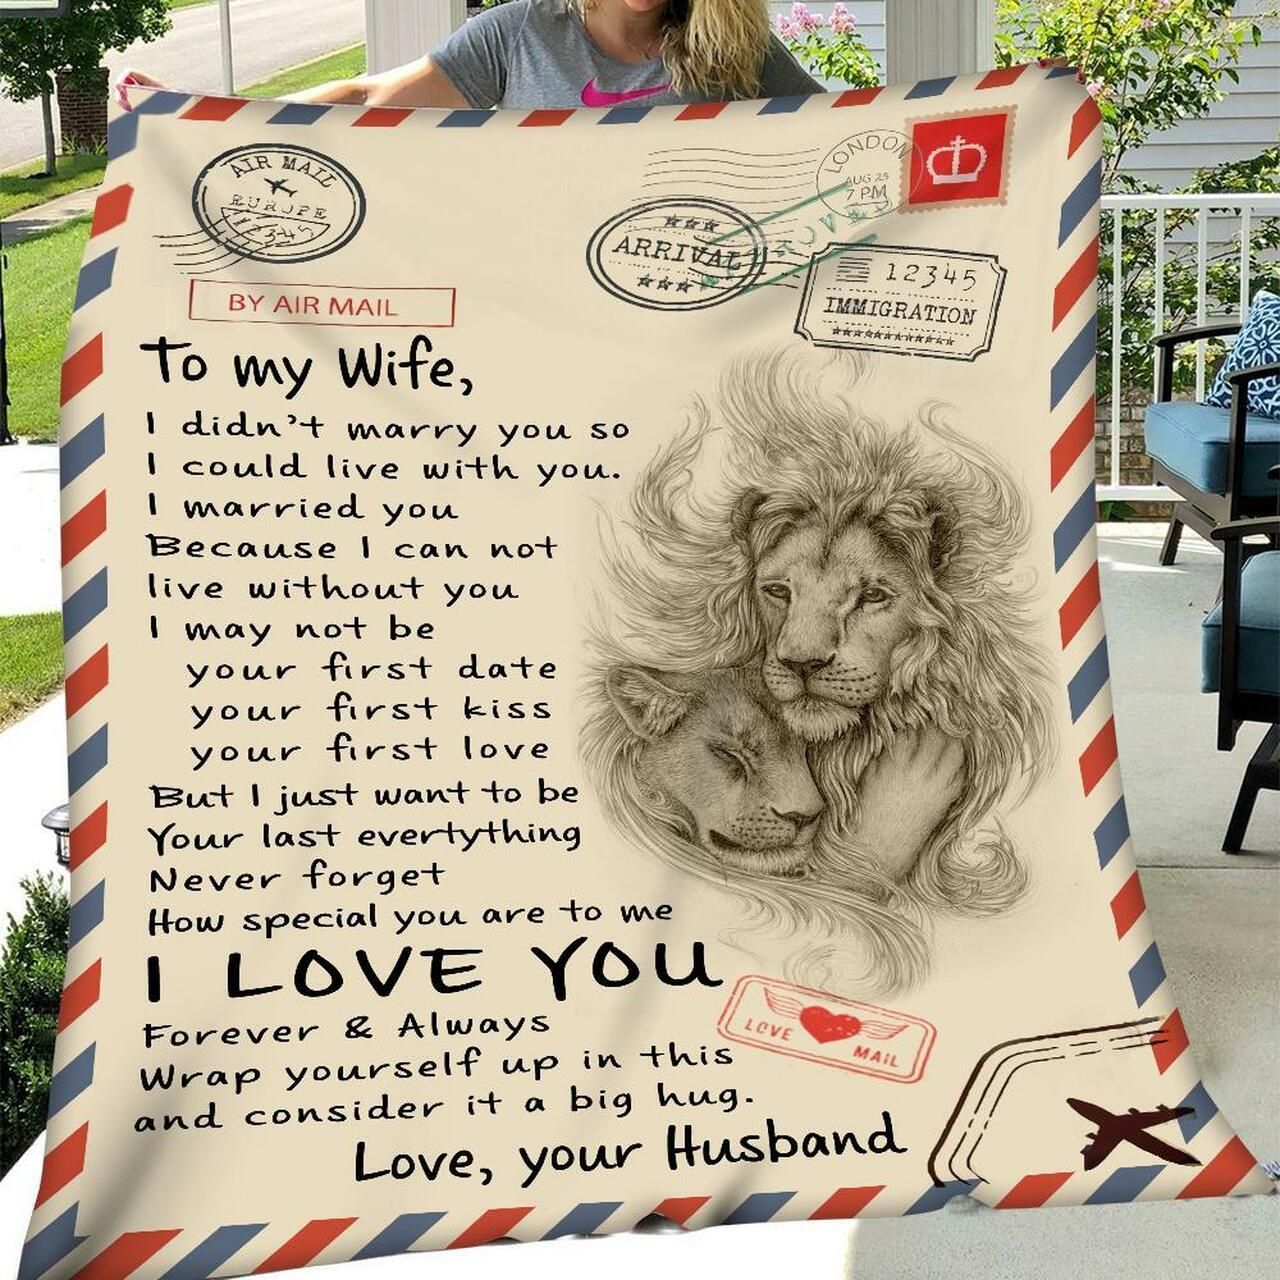 AIR MAIL
EUROPE
12345
BY AIR MAIL
LONDON
AUG 25
7 PM
ARRIVAL
12345
IMMIGRATION
To my Wife,
I didn't marry you so
I could live with you.
I married you
Because I can not
live without you
I may not be
your first date
your first kiss
your first love
But I just want to be
Your last evertything
Never forget
How special you are to me
I LOVE YOU
Forever & Always
Wrap yourself up in this
and consider it a big hug.
Love, your Husband
LOVE
MAIL